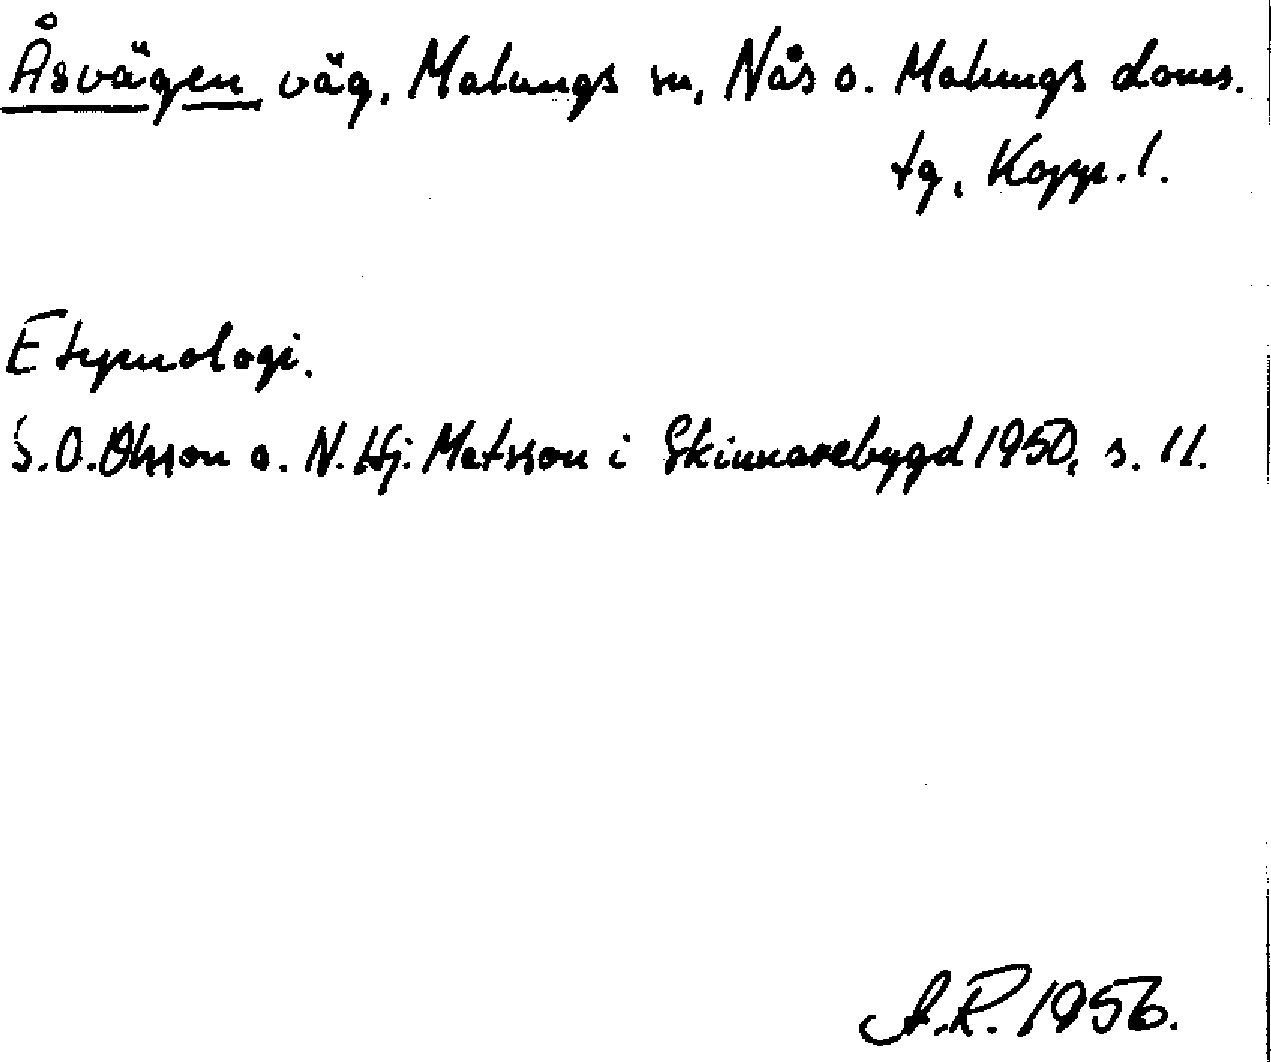 Åsvägen väg, Malungs sn, Nås o. Malungs doms.
tg, Kopp. l.
Etymologi.
S. O. Olsson o. N. Hj. Matsson i Skinnarebygd 1950, s. 11.
A.R. 1956.